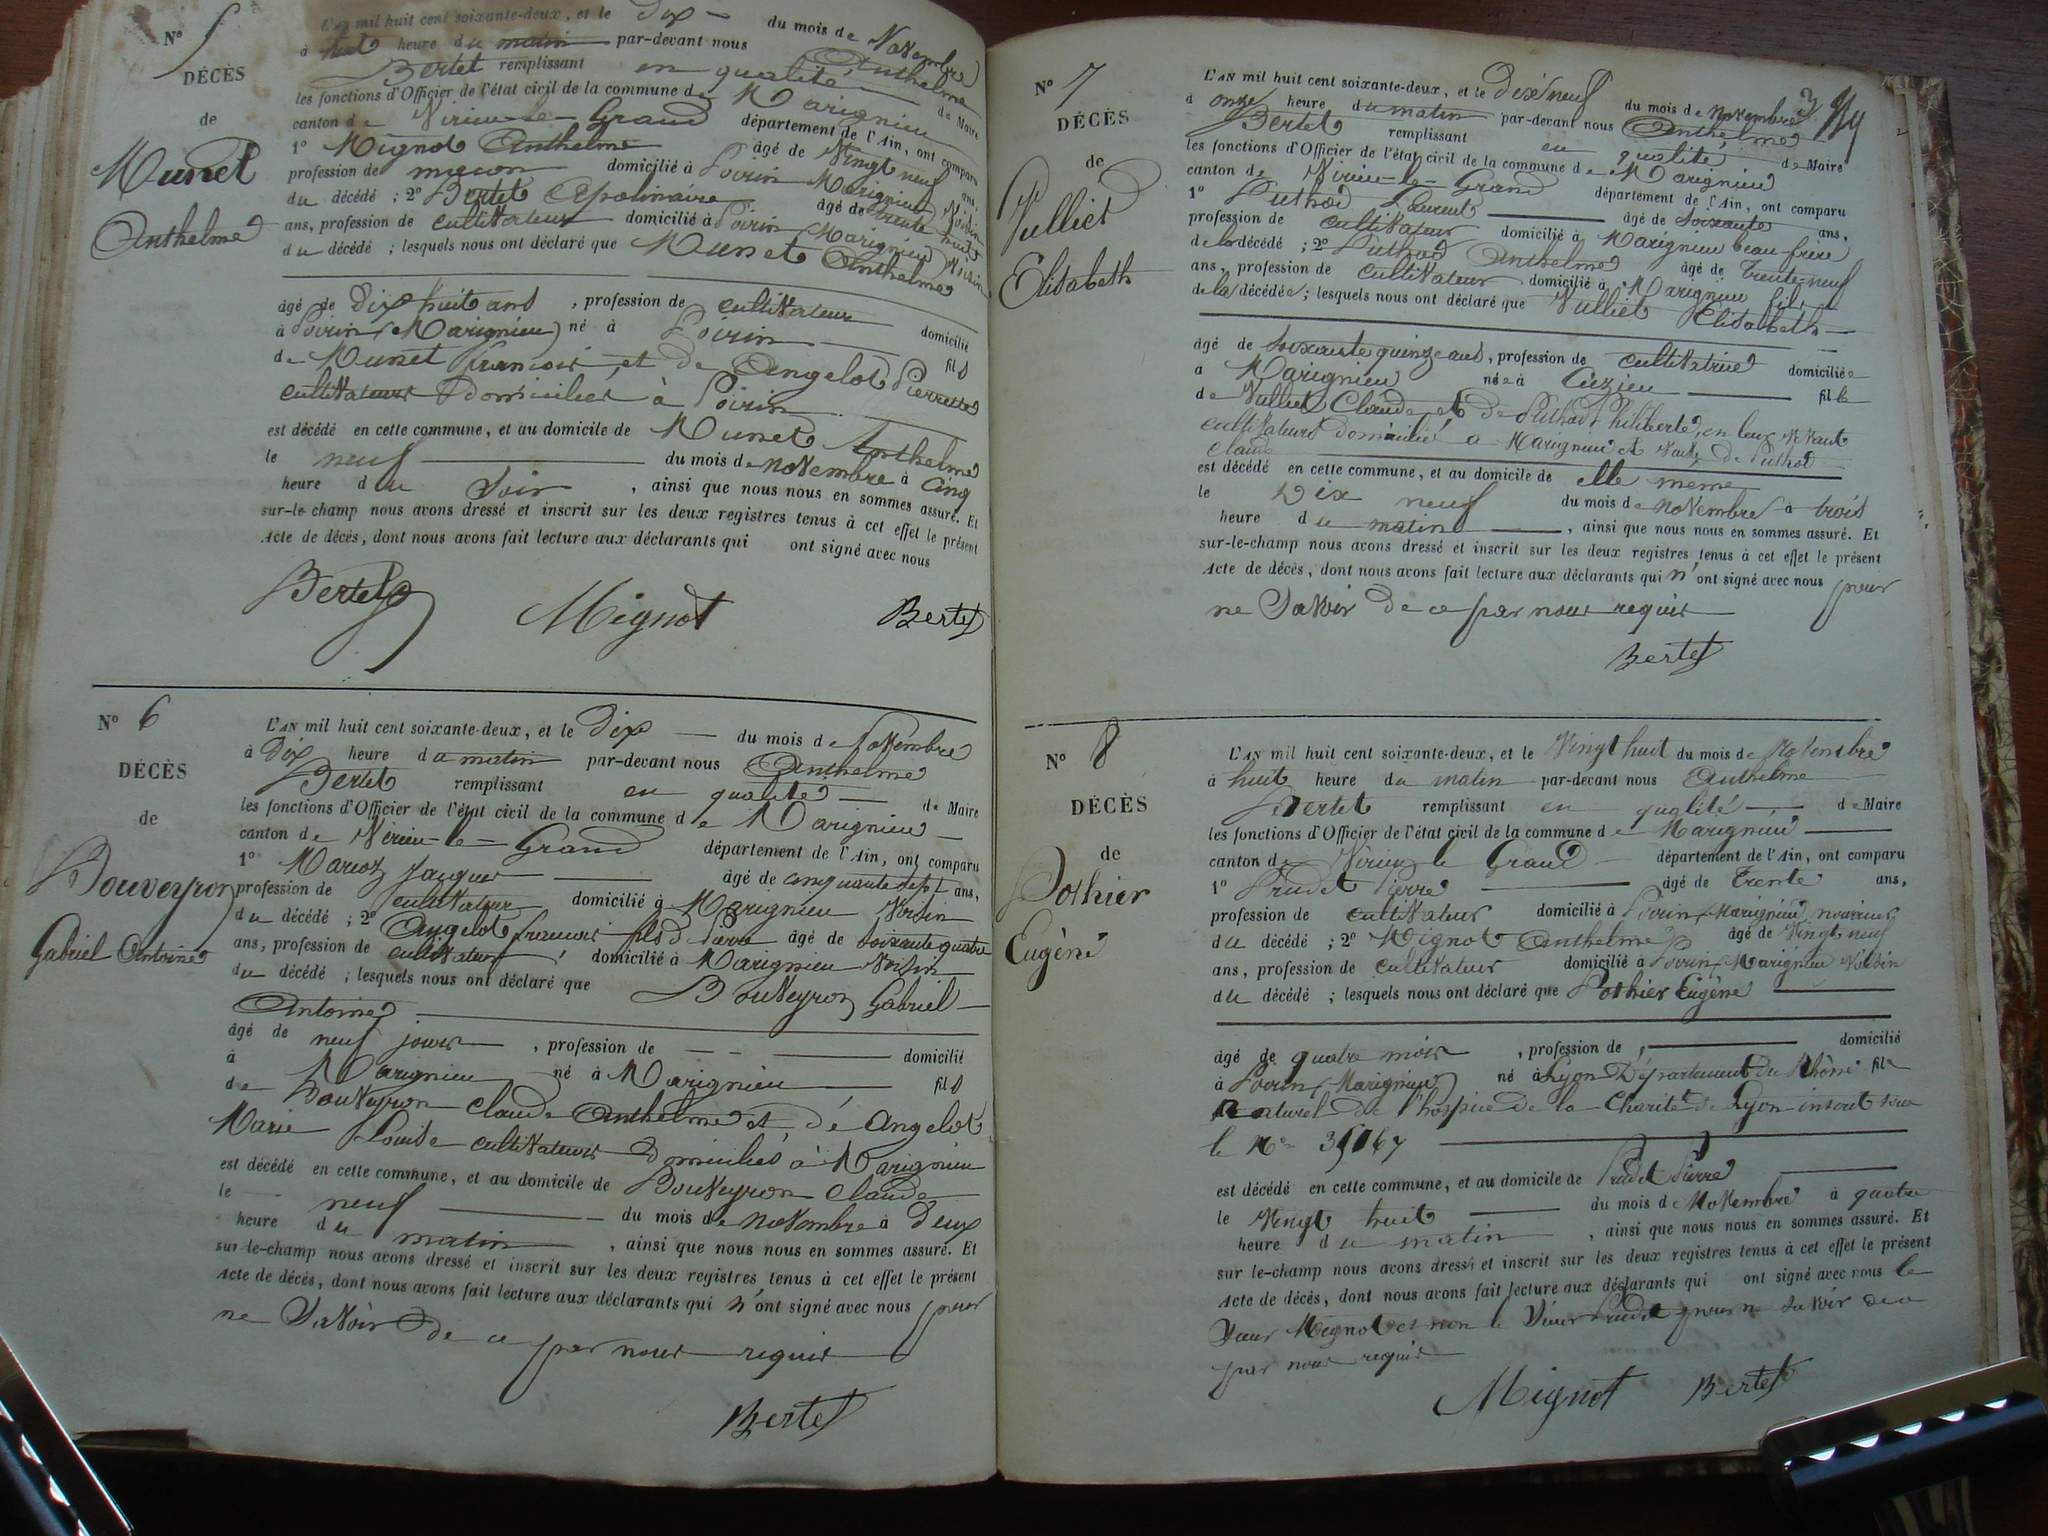 N° 5
DÉCÈS
de
Munet
Anthelme
L'AN mil huit cent soixante-deux, et le Dix du mois de Novembre
à huit heure du matin par-devant nous Anthelme
Bertet remplissant en qualité de Maire
les fonctions d'Officier de l'état civil de la commune de Marignieu
canton de Virieu-le-Grand département de l'Ain, ont comparu
1° Mignot Anthelme âgé de Vingt neuf ans,
profession de maçon domicilié à Poirin Marignieu Voisin
du décédé ; 2° Bertet Apolinaire âgé de trente huit
ans, profession de cultivateur domicilié à Poirin (Marignieu) Voisin
du décédé ; lesquels nous ont déclaré que Munet Anthelme
âgé de Dix huit ans, profession de cultivateur domicilié
à Poirin (Marignieu) né à Poirin fils
de Munet francois et de Angelot Pierrette
cultivateurs Domiciliés à Poirin
est décédé en cette commune, et au domicile de Munet Anthelme
le neuf du mois de novembre à cinq
heure du Soir, ainsi que nous nous en sommes assuré. Et
sur-le-champ nous avons dressé et inscrit sur les deux registres tenus à cet effet le présent
Acte de décès, dont nous avons fait lecture aux déclarants qui ont signé avec nous
Bertet Mignot Bertet
N° 6
DÉCÈS
de
Bouveyron
Gabriel Antoine
L'AN mil huit cent soixante-deux, et le Dix du mois de Novembre
à Dix heure du matin par-devant nous Anthelme
Bertet remplissant en qualité de Maire
les fonctions d'Officier de l'état civil de la commune de Marignieu
canton de Virieu-le-Grand département de l'Ain, ont comparu
1° Marioz Jacques âgé de cinquante sept ans,
profession de cultivateur domicilié à Marignieu Voisin
du décédé ; 2° Angelot francois fils d Pierre âgé de soixante quatre
ans, profession de cultivateur, domicilié à Marignieu Voisin
du décédé ; lesquels nous ont déclaré que Bouveyron Gabriel
Antoine
âgé de neuf jours, profession de domicilié
à Marignieu né à Marignieu fils
de Bouveyron Claude Anthelme et de Angelot
Marie Louise cultivateurs Domiciliés à Marignieu
est décédé en cette commune, et au domicile de Bouveyron Claude
le neuf du mois de novembre à Deux
heure du matin, ainsi que nous nous en sommes assuré. Et
sur-le-champ nous avons dressé et inscrit sur les deux registres tenus à cet effet le présent
Acte de décès, dont nous avons fait lecture aux déclarants qui n'ont signé avec nous pour
ne Savoir de ce par nous requis
Bertet
N° 7
DÉCÈS
de
Vulliet
Elisabeth
L'AN mil huit cent soixante-deux, et le Dix neuf du mois de novembre
à onze heure du matin par-devant nous Anthelme
Bertet remplissant en qualité de Maire
les fonctions d'Officier de l'état civil de la commune de Marignieu
canton de Virieu-le-Grand département de l'Ain, ont comparu
1° Puthod Laurent âgé de soixante ans,
profession de cultivateur domicilié à Marignieu beau-frère
de la décédé ; 2° Puthod Anthelme âgé de trente-neuf
ans, profession de cultivateur domicilié à Marignieu fils
de la décédée ; lesquels nous ont déclaré que Vulliet Elisabeth
âgé de soixante quinze ans, profession de cultivatrice domiciliée
à Marignieu née à Cuzieu fille
de Vulliet Claude et de Puthod Philiberte, en leur Vivant
cultivateurs domicilié a Marignieu et Veuve De Puthod
Claude
est décédé en cette commune, et au domicile de elle même
le Dix neuf du mois de novembre à trois
heure du matin, ainsi que nous nous en sommes assuré. Et
sur-le-champ nous avons dressé et inscrit sur les deux registres tenus à cet effet le présent
Acte de décès, dont nous avons fait lecture aux déclarants qui n'ont signé avec nous pour
ne Savoir De ce par nous requis
Bertet
N° 8
DÉCÈS
de
Pothier
Eugène
L'AN mil huit cent soixante-deux, et le Vingt huit du mois de Novembre
à huit heure du matin par-devant nous Anthelme
Bertet remplissant en qualité de Maire
les fonctions d'Officier de l'état civil de la commune de Marignieu
canton de Virieu le Grand département de l'Ain, ont comparu
1° Prudet Pierre âgé de trente ans,
profession de cultivateur domicilié à Poirin (Marignieu) nourricier
du décédé ; 2° Mignot Anthelme âgé de Vingt neuf
ans, profession de cultivateur domicilié à Poirin, Marignieu Voisin
du décédé ; lesquels nous ont déclaré que Pothier Eugène
âgé de quatre mois, profession de domicilié
à Poirin (Marignieu) né à Lyon Département du Rhône fils
naturel de l'hospice De la Charité de Lyon inscrit sous
le N°
est décédé en cette commune, et au domicile de Prudet Pierre
le Vingt huit du mois de Novembre à quatre
heure du matin, ainsi que nous nous en sommes assuré. Et
sur le-champ nous avons dressé et inscrit sur les deux registres tenus à cet effet le présent
Acte de décès, dont nous avons fait lecture aux déclarants qui ont signé avec nous le
Sieur Mignot et non le Sieur Prudet pour ne savoir de ce
par nous requis
Mignot Bertet